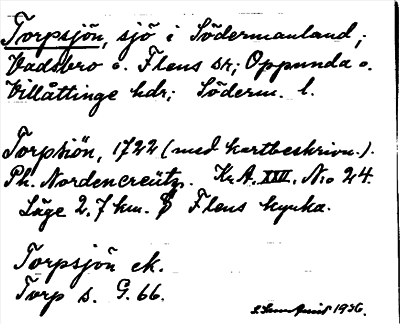 Torpsjön, sjö i Södermanland;
Vadsbro o. Flens sr; Oppunda o.
Villåttinge hdr; Söderm. l.
Torpsiön, 1722 (med kartbeskrivn.).
Ph. Nordencreütz. Kr. A. XVII. No 24.
Läge 2,7 km. S Flens kyrka.
Torpsjön ek.
Torp s. G. 66.
1936.